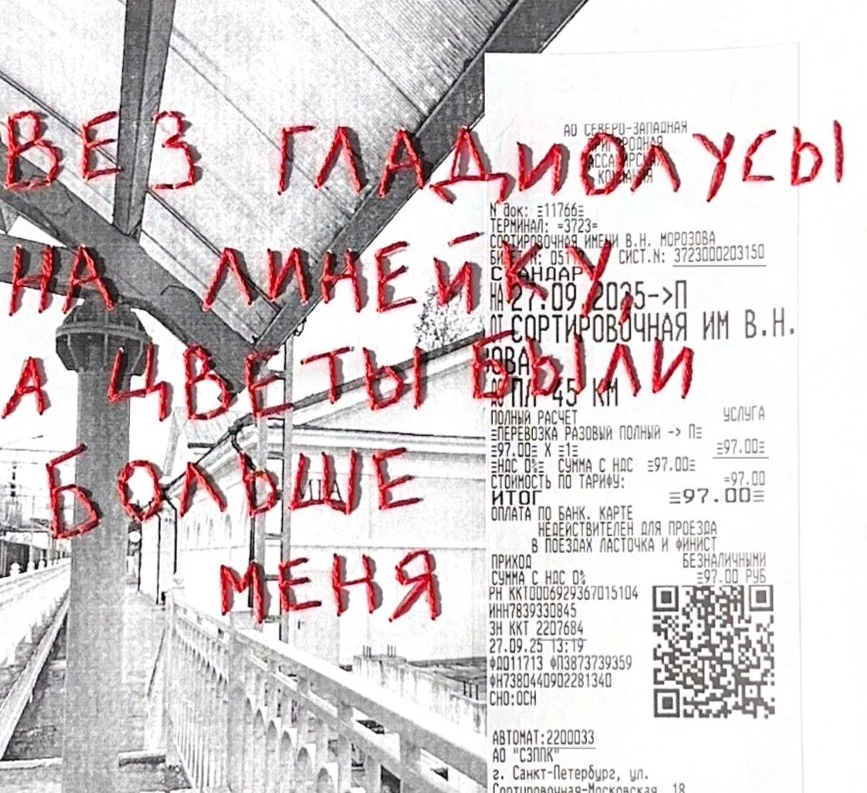 ВЕЗ ГЛАДИОЛУСЫ
НА ЛИНЕЙКУ,
А ЦВЕТЫ БЫЛИ
БОЛЬШЕ
МЕНЯ
АО СЕВЕРО-ЗАПАДНАЯ
ПРИГОРОДНАЯ
ПАССАЖИРСКАЯ
КОМПАНИЯ
N док: =11766=
ТЕРМИНАЛ: =3723=
СОРТИРОВОЧНАЯ ИМЕНИ В.Н. МОРОЗОВА
СИСТ.N: 3723000203150
СТАНДАР
НА 27.09.2025->П
ОТ СОРТИРОВОЧНАЯ ИМ В.Н.
ОВА
ДО ПЛ 45 КМ
ПОЛНЫЙ РАСЧЕТ УСЛУГА
=ПЕРЕВОЗКА РАЗОВЫЙ ПОЛНЫЙ -> П=
=97.00= X =1= =97.00=
=НДС 0%= СУММА С НДС =97.00=
СТОИМОСТЬ ПО ТАРИФУ: =97.00
ИТОГ =97.00=
ОПЛАТА ПО БАНК. КАРТЕ
НЕДЕЙСТВИТЕЛЕН ДЛЯ ПРОЕЗДА
В ПОЕЗДАХ ЛАСТОЧКА И ФИНИСТ
ПРИХОД БЕЗНАЛИЧНЫМИ
СУММА С НДС 0% =97.00 РУБ
РН ККТ0006929367015104
ИНН7839330845
ЗН ККТ 2207684
27.09.25 13:19
ФД011713 ФП3873739359
ФН7380440902281340
СНО:ОСН
АВТОМАТ:2200033
АО "СЗППК"
г. Санкт-Петербург, ул.
Сортировочная-Московская, 18